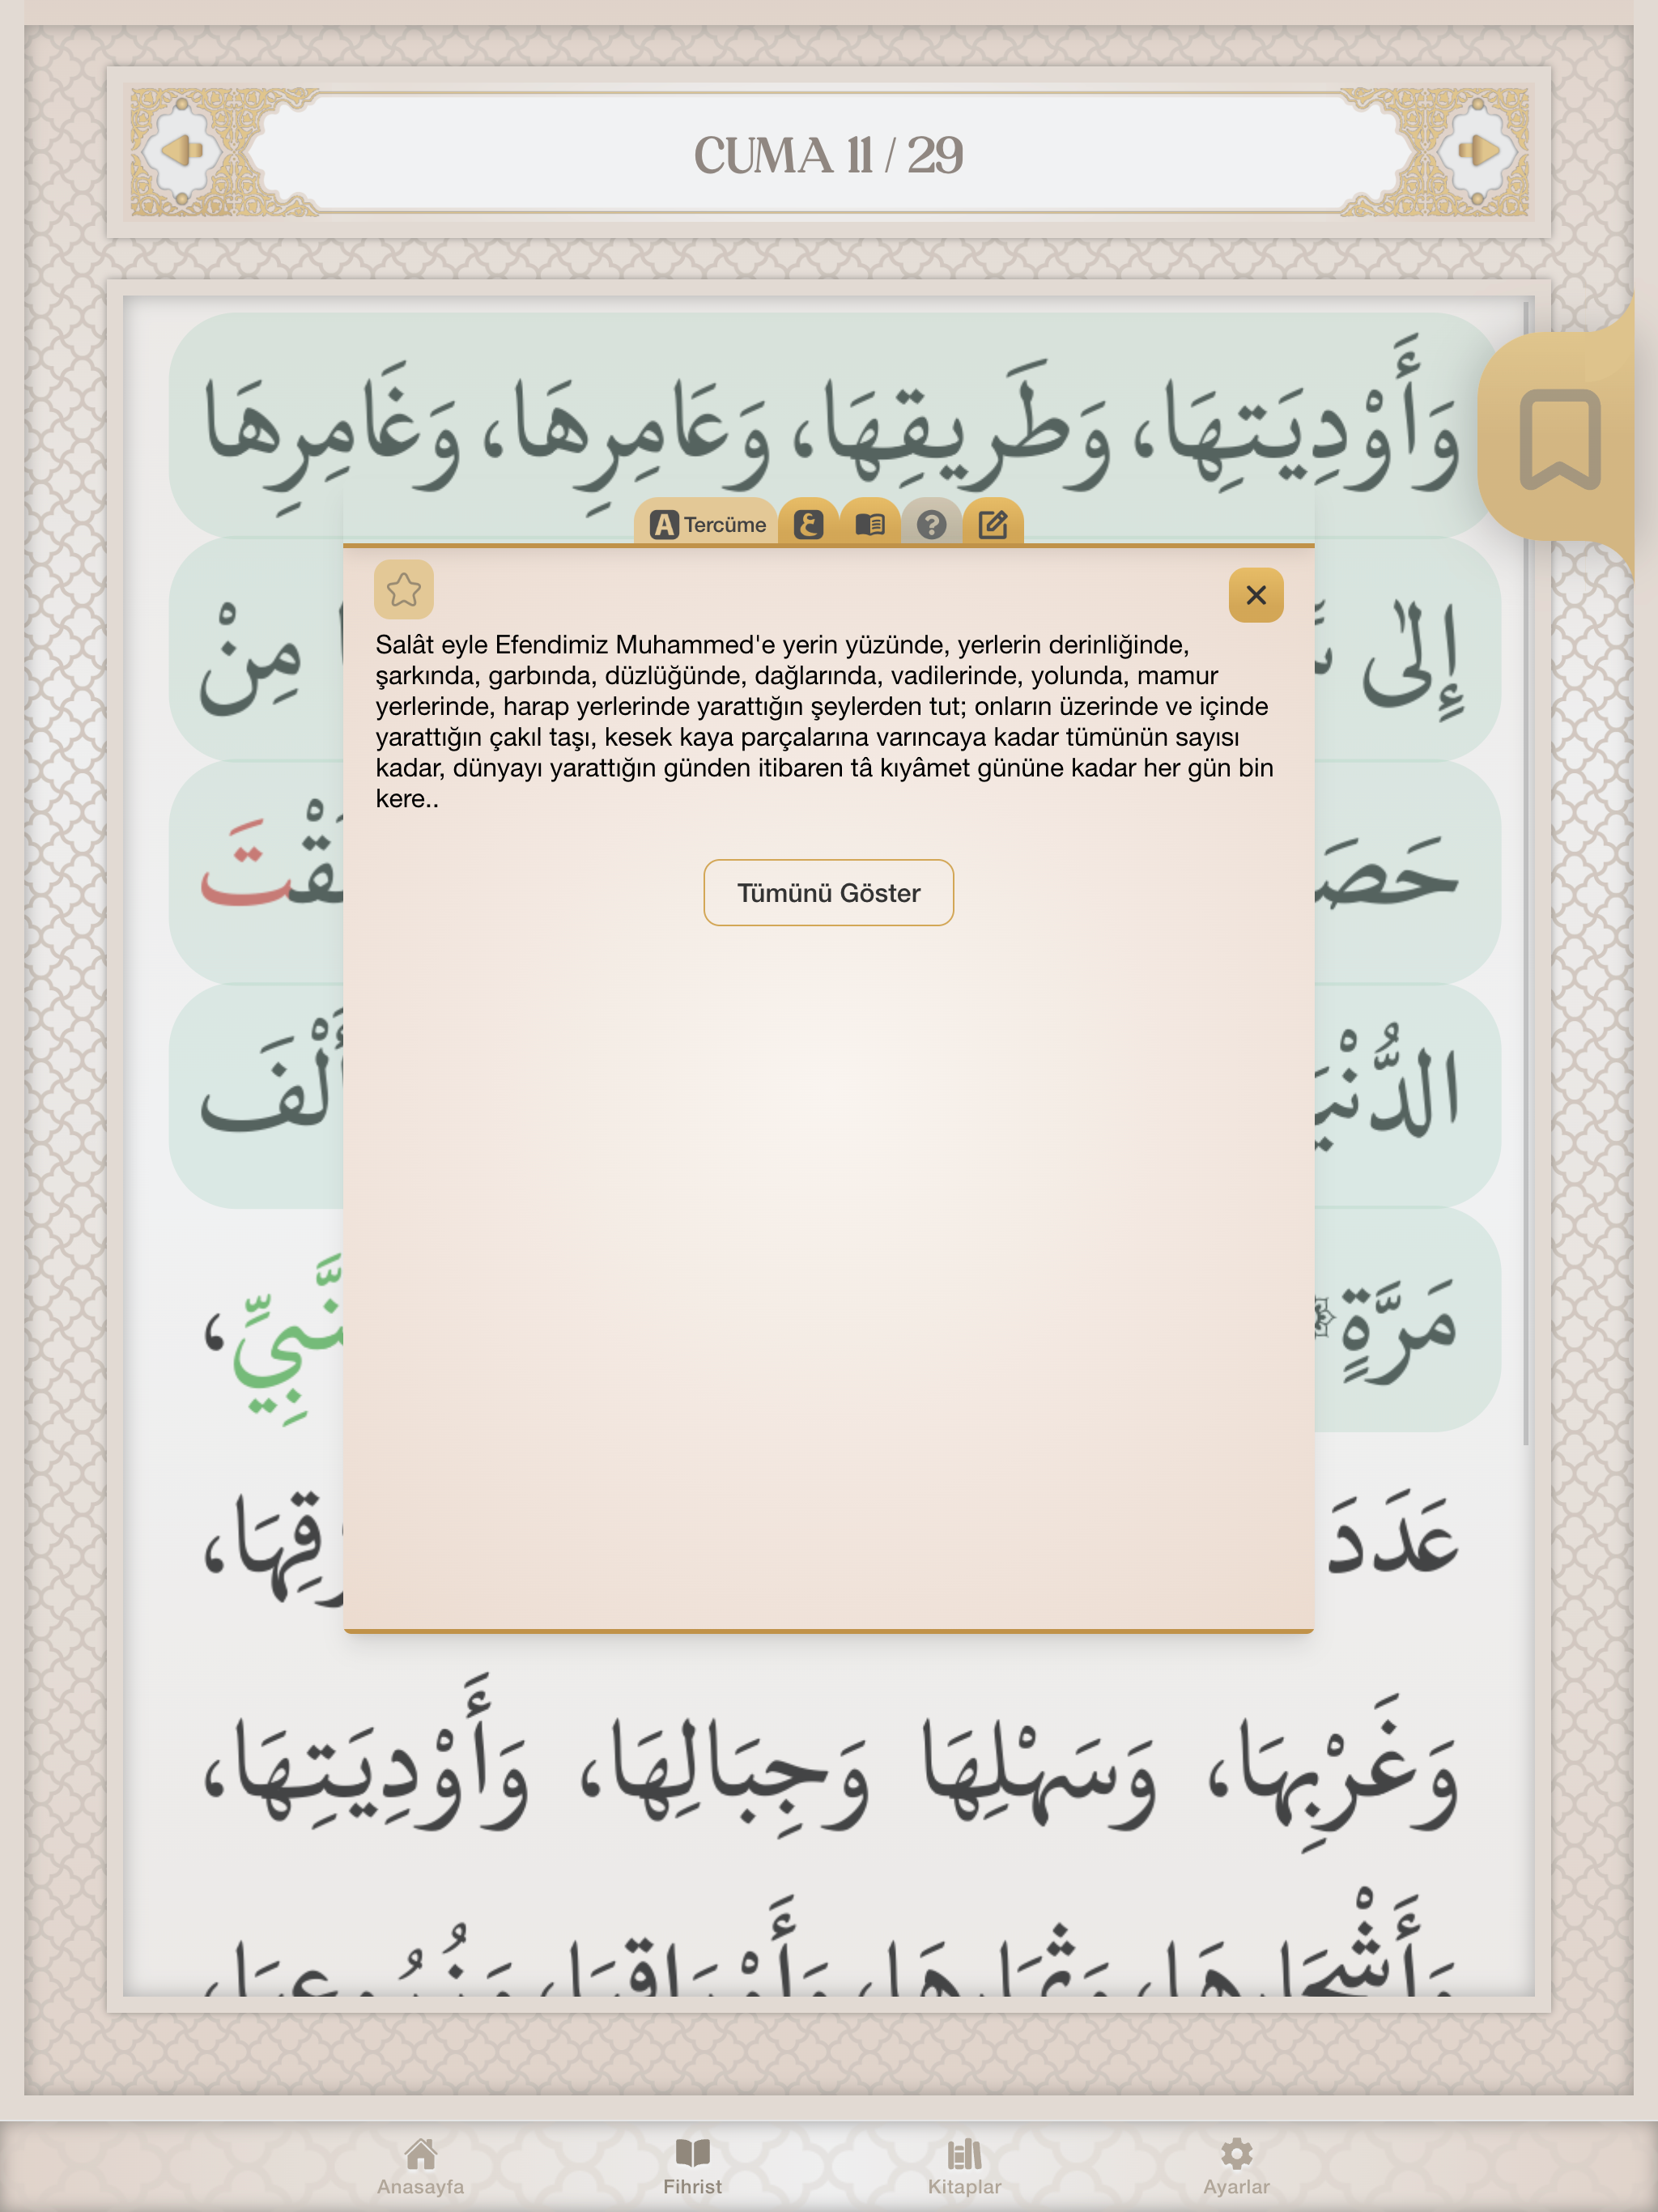 CUMA 11 / 29
وَأَوْدِيَتِهَا، وَطَرِيقِهَا، وَعَامِرِهَا، وَغَامِرِهَا
Tercüme
إِلٰى
مِنْ
Salât eyle Efendimiz Muhammed'e yerin yüzünde, yerlerin derinliğinde,
şarkında, garbında, düzlüğünde, dağlarında, vadilerinde, yolunda, mamur
yerlerinde, harap yerlerinde yarattığın şeylerden tut; onların üzerinde ve içinde
yarattığın çakıl taşı, kesek kaya parçalarına varıncaya kadar tümünün sayısı
kadar, dünyayı yarattığın günden itibaren tâ kıyâmet gününe kadar her gün bin
kere..
Tümünü Göster
مَرَّةٍ
عَدَدَ
وَغَرْبِهَا، وَسَهْلِهَا وَجِبَالِهَا، وَأَوْدِيَتِهَا،
Anasayfa
Fihrist
Kitaplar
Ayarlar